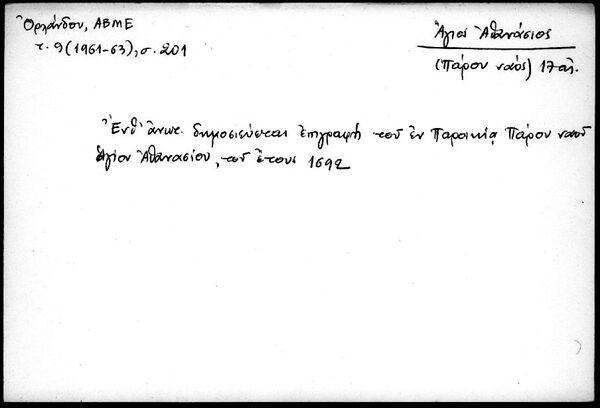 Ὀρλάνδου, ΑΒΜΕ
τ. 9 (1961-63), σ. 201
Ἅγιος Ἀθανάσιος
(Πάρου ναός) 17 αἰ.
Ἔνθ' ἄνωτ. δημοσιεύεται ἐπιγραφὴ τοῦ ἐν Παροικίᾳ Πάρου ναοῦ
Ἁγίου Ἀθανασίου, τοῦ ἔτους 1692